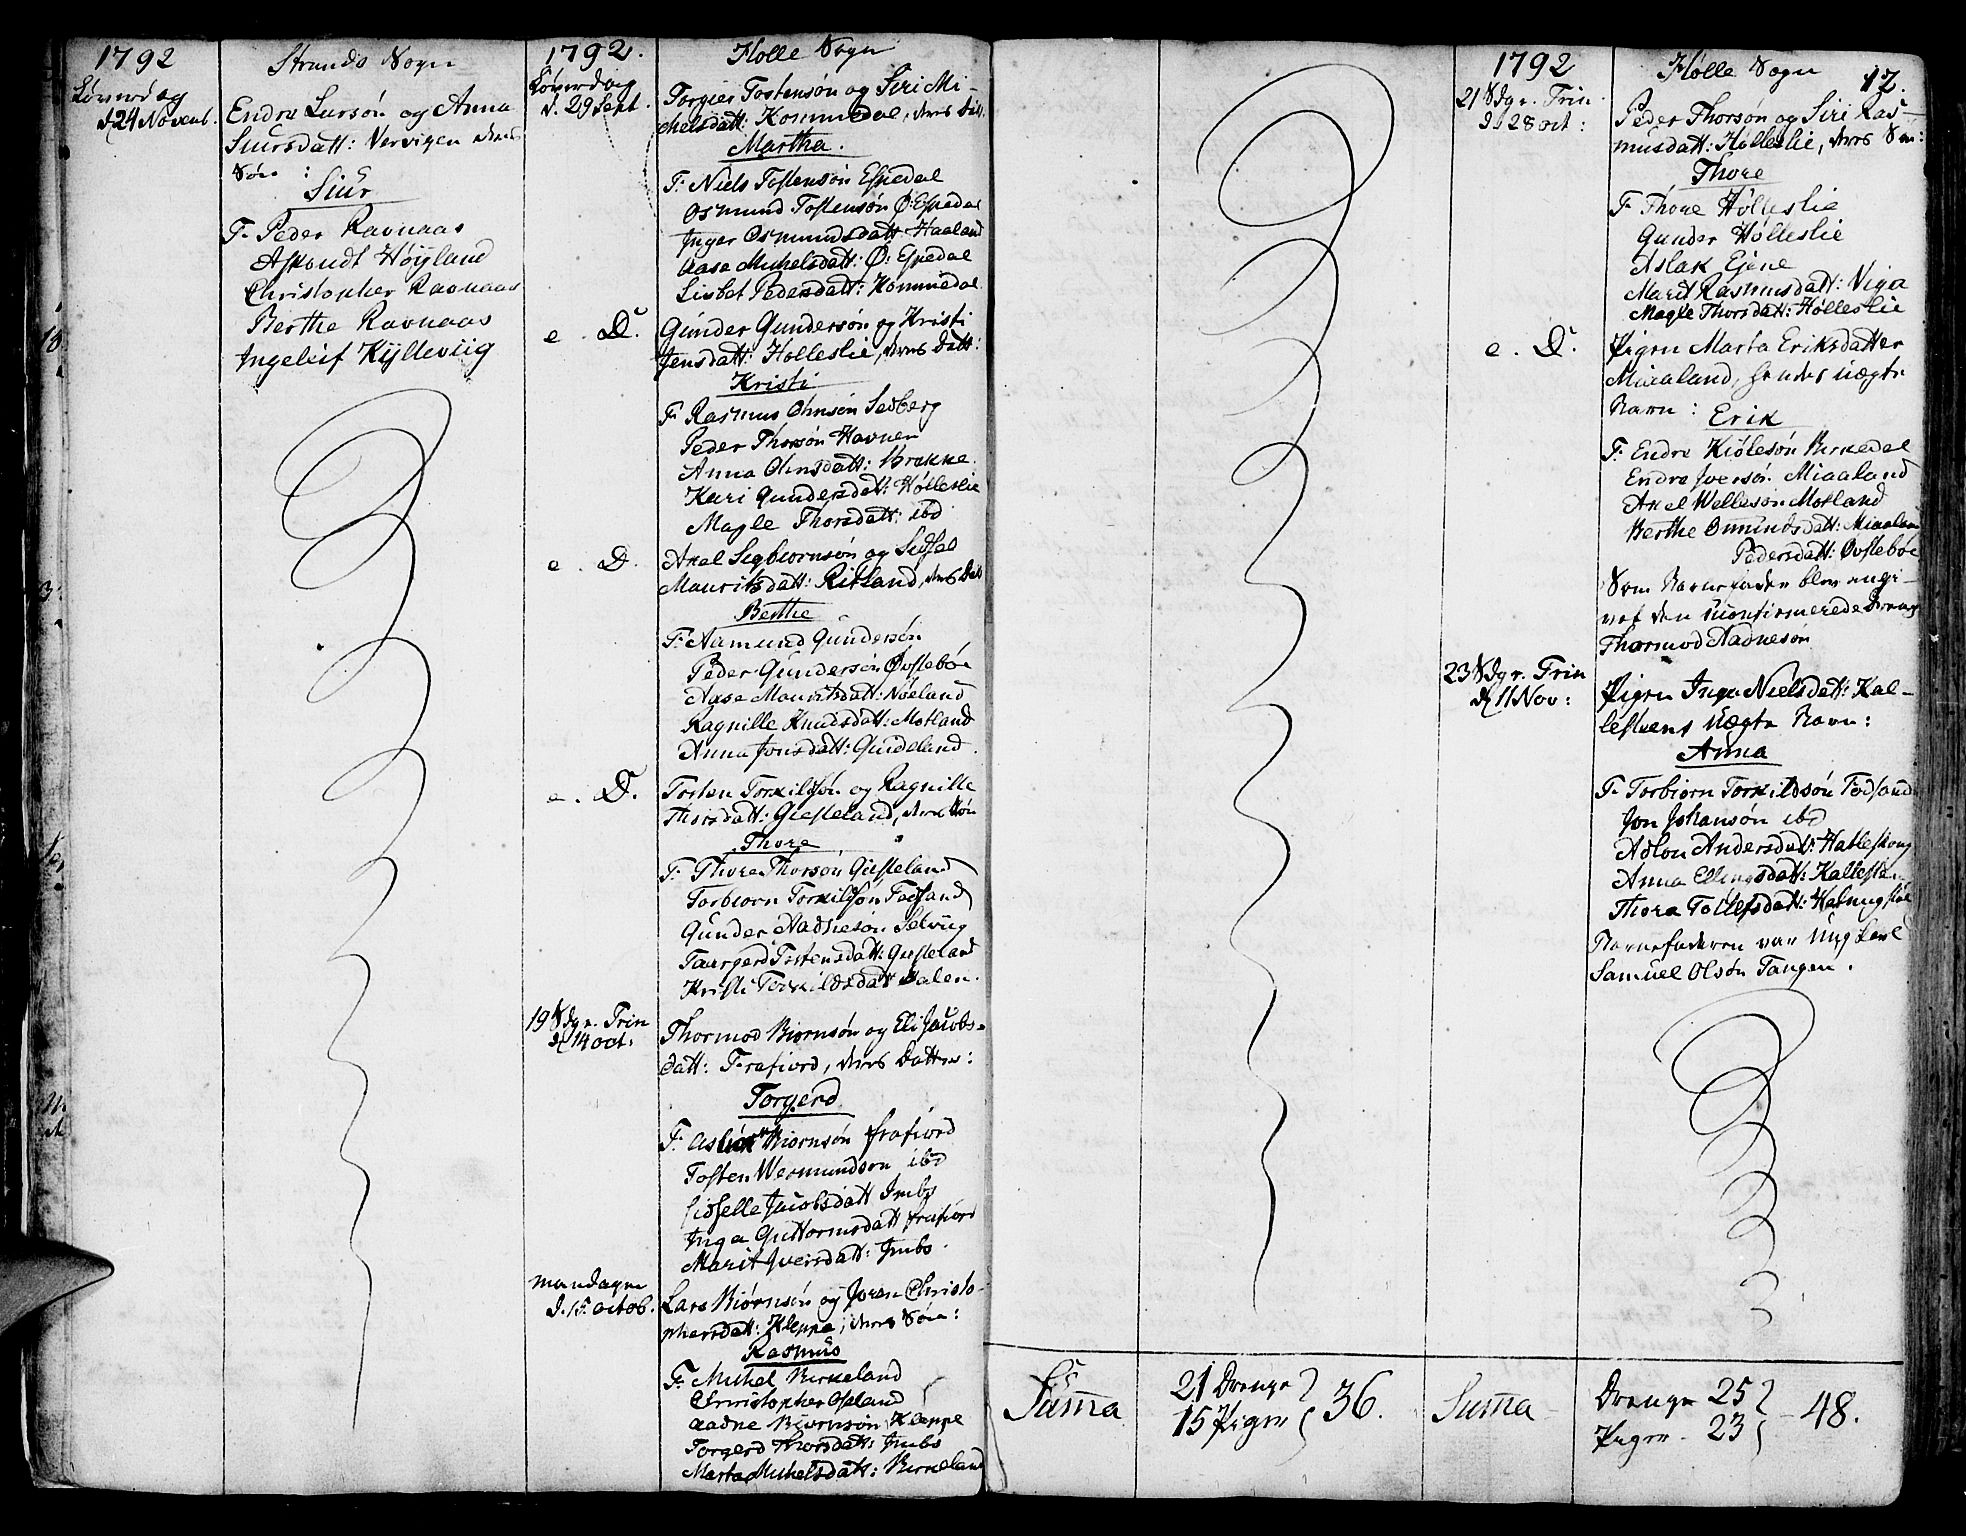 1792
Strands Sogn
Løverdag
d. 24 Novemb.
Endre Larsøn og Anna
Siursdatt: Vervigen deres
Søn :
Siur
F. Peder Ravnaas
Askoudt Høyland
Christopher Ravnaas
Berthe Ravnaas
Ingeleif Kyllevig
1792.
Holle Sogn
Løverdag
d. 29 Sept.
Torgier Tostensøn og Siri Mi-
chelsdatt: Kommedal, deres Datt.
Martha.
F. Niels Tostensøn Espedal
Osmund Tostensøn Ø: Espedal
Inger Osmundsdatt Haaland
Aase Michelsdatt: Ø: Espedal
Lisbet Pedersdatt: Kommedal
e. D.
Gunder Gundersøn og Kristi
Jensdatt: Holleslie, deres Datt:
Kristi
F. Rasmus Ohnsøn Sedberg
Peder Thorsøn Havnen
Anna Ohnsdatt: Brække.
Kari Gundersdatt: Hølleslie
Magle Thorsdatt: ibd
e. D.
Axel Sigbiornsøn og Sidsel
Mauritsdatt: Ritland, deres Datt
Berthe
F. Aamund Gundersøn
Peder Gundersøn Øvstebøe
Aase Mauritsdatt: Nøeland
Ragnille Knudsdatt: Motland
Anna Jonsdatt: Quideland.
e. D.
Tosten Torkildsøn og Ragnille
Thorsdatt: Giesteland, deres Søn
Thore
F. Thore Thorsøn Giesteland
Torbiorn Torkildsøn Fodsand
Gunder Aadnesøn Selvig
Taargerd Tostensdatt: Giesteland
Kristi Torkildsdatt Dalen.
19 Sdgr. Trin
d. 14 oct:
Thormod Biornsøn og Eli Jacobs-
datt: Frafiord, deres Datter:
Torgerd
F. Aslak Biornsøn frafiord
Tosten Wermundsøn ibd
Sidselle Jacobsdatt Imbs
Inga Guttormsdatt frafiord
Marit Iversdatt: Imbs.
Mandagen
d. 15 octob.
Lars Biørnsøn og Joren Christo-
phersdatt: Kleppe, deres Søn:
Rasmus
F. Michel Birkeland
Christopher Opland
Aadne Biornsøn Kleppe
Torgerd Thorsdatt: Imbs
Marta Michelsdatt: Birkeland
Suma
21 Drenge
15 Piger
36.
1792
Hølle Sogn
17.
21 Sdgr. Trin.
d. 28 oct:
Peder Thorsøn og Siri Ras-
musdatt: Hølleslie, deres Søn:
Thore
F. Thore Hølleslie
Gunder Hølleslie
Aslak Ejene
Marit Rasmusdatt: Viga
Magle Thorsdatt: Hølleslie
e. D.
Pigen Marta Eriksdatter
Miaaland, hendes uægte
Barn :
Erik
F. Endre Kiølesøn Birkedal
Endre Iversøn Miaaland
Axel Wellesøn Motland
Berthe Omundsdatt: Miaaland
Pedersdatt: Øvstebøe
Som Barnefader blev angi-
vet den uconfirmerede Dreng
Thormod Aadnesøn
23 Sdgr. Trin
d. 11 Nov:
Pigen Inga Nielsdatt: Kal-
lestvens uægte Barn:
Anna
F. Torbiorn Torkildsøn Fodsand
Jon Johansøn ibd
Adlon Andersdatt: Hatleskong
Anna Ellingsdatt: Kalleste
Thora Tollefsdatt:
Barnefaderen var Ung Karl
Samuel Olsøn Tangen.
Suma
Drenge 25
Piger 23
48.